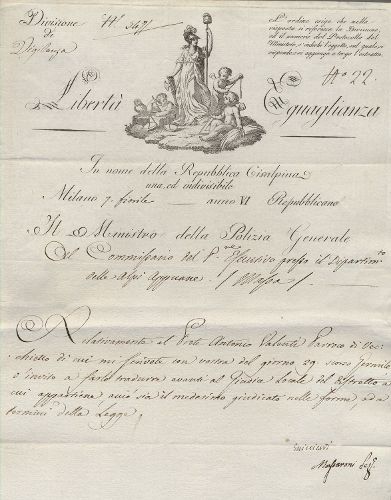 Divisione
di
Vigilanza
L'ordine esige che nelle
risposte si riferisca la Divisione,
ed il numero del Protocollo del
Ministro, e indichi l'oggetto, sul quale si
risponde, con apporvi a tergo l'estratto.
N.° 22.
Libertà Eguaglianza
In nome della Repubblica Cisalpina
una, ed indivisibile
Milano 7. fiorile anno VI Repubblicano
Il Ministro della Polizia Generale
Al Commissario del P.re Esecutivo presso il Dipartim.to
delle Alpi Appuane / Massa /
Relativamente al Prete Antonio Valenti Parroco di Vec-
chietto di cui mi scrivete con vostra del giorno 29 scorso Germile
v'invito a farlo tradurre avanti al Giudice Locale del Distretto a
cui appartiene, onde sia il medesimo giudicato nelle forme, ed a
termini della Legge,